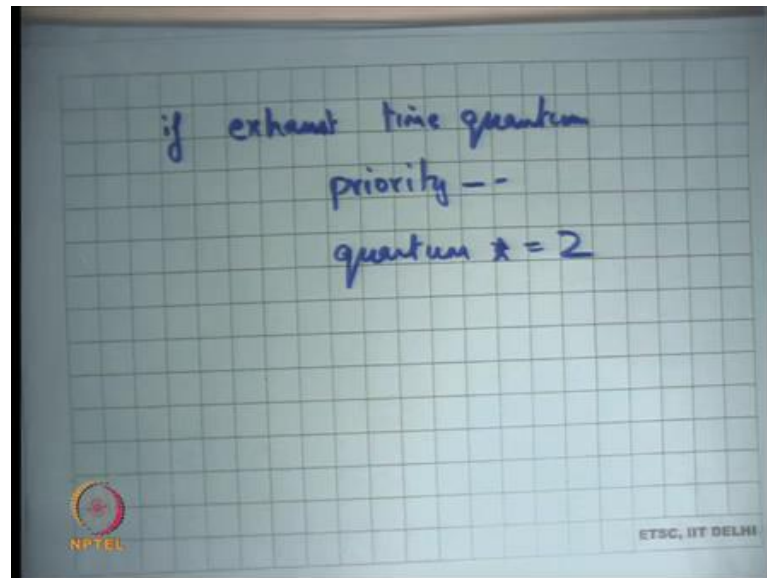 if exhaust time quantum
priority --
quantum * = 2
NPTEL
ETSC, IIT DELHI